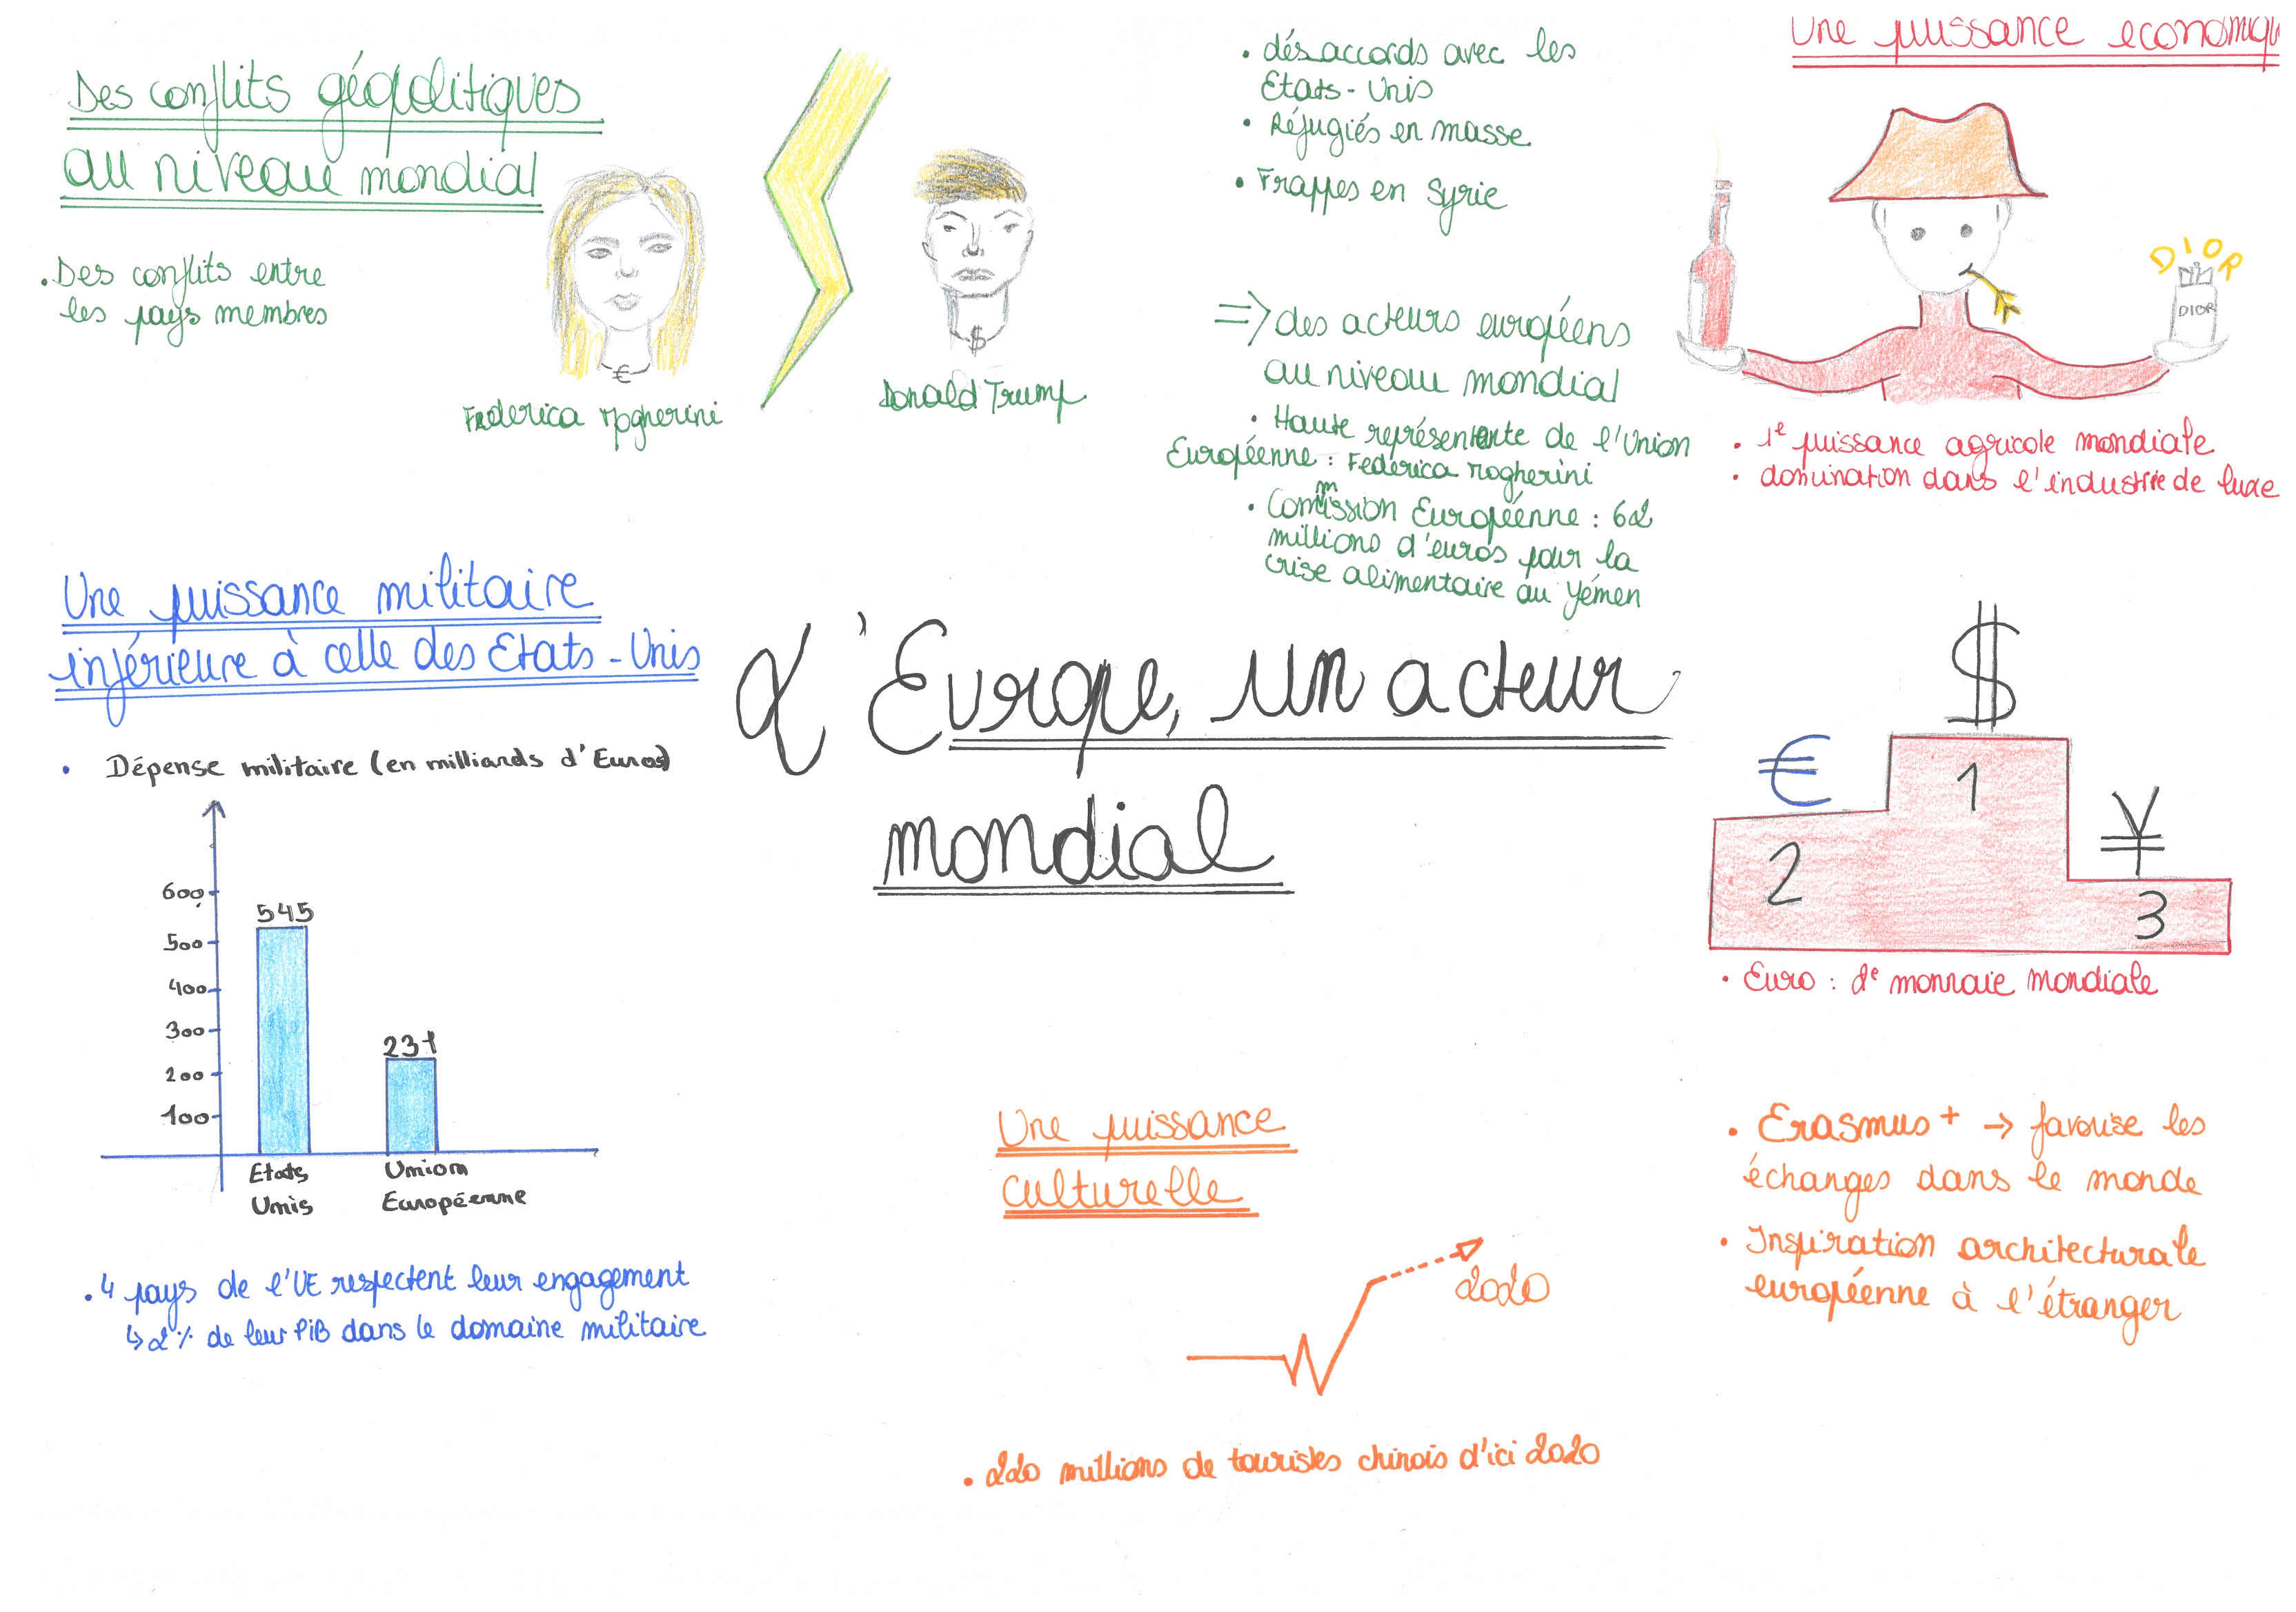 Des conflits géopolitiques
au niveau mondial
. Des conflits entre
les pays membres
€
Federica Mogherini
$
Donald Trump
• désaccords avec les
Etats-Unis
• Réfugiés en masse
• Frappes en Syrie
=> des acteurs européens
au niveau mondial
• Haute représentante de l'Union
Européenne : Federica Mogherini
• Commission Européenne : 62
millions d'euros pour la
crise alimentaire au Yémen
Une puissance economiqu
DIOR
DIOR
• 1e puissance agricole mondiale
• domination dans l'industrie de luxe
$
€
¥
1
2
3
• Euro : 2e monnaie mondiale
L'Europe, un acteur
mondial
Une puissance militaire
inférieure à celle des Etats-Unis
• Dépense militaire (en milliards d'Euros)
600
500
400
300
200
100
545
231
Etats
Unis
Union
Européenne
. 4 pays de l'UE respectent leur engagement
↳ 2% de leur PiB dans le domaine militaire
Une puissance
culturelle
2020
• 220 millions de touristes chinois d'ici 2020
• Erasmus + → favorise les
échanges dans le monde
• Inspiration architecturale
européenne à l'étranger